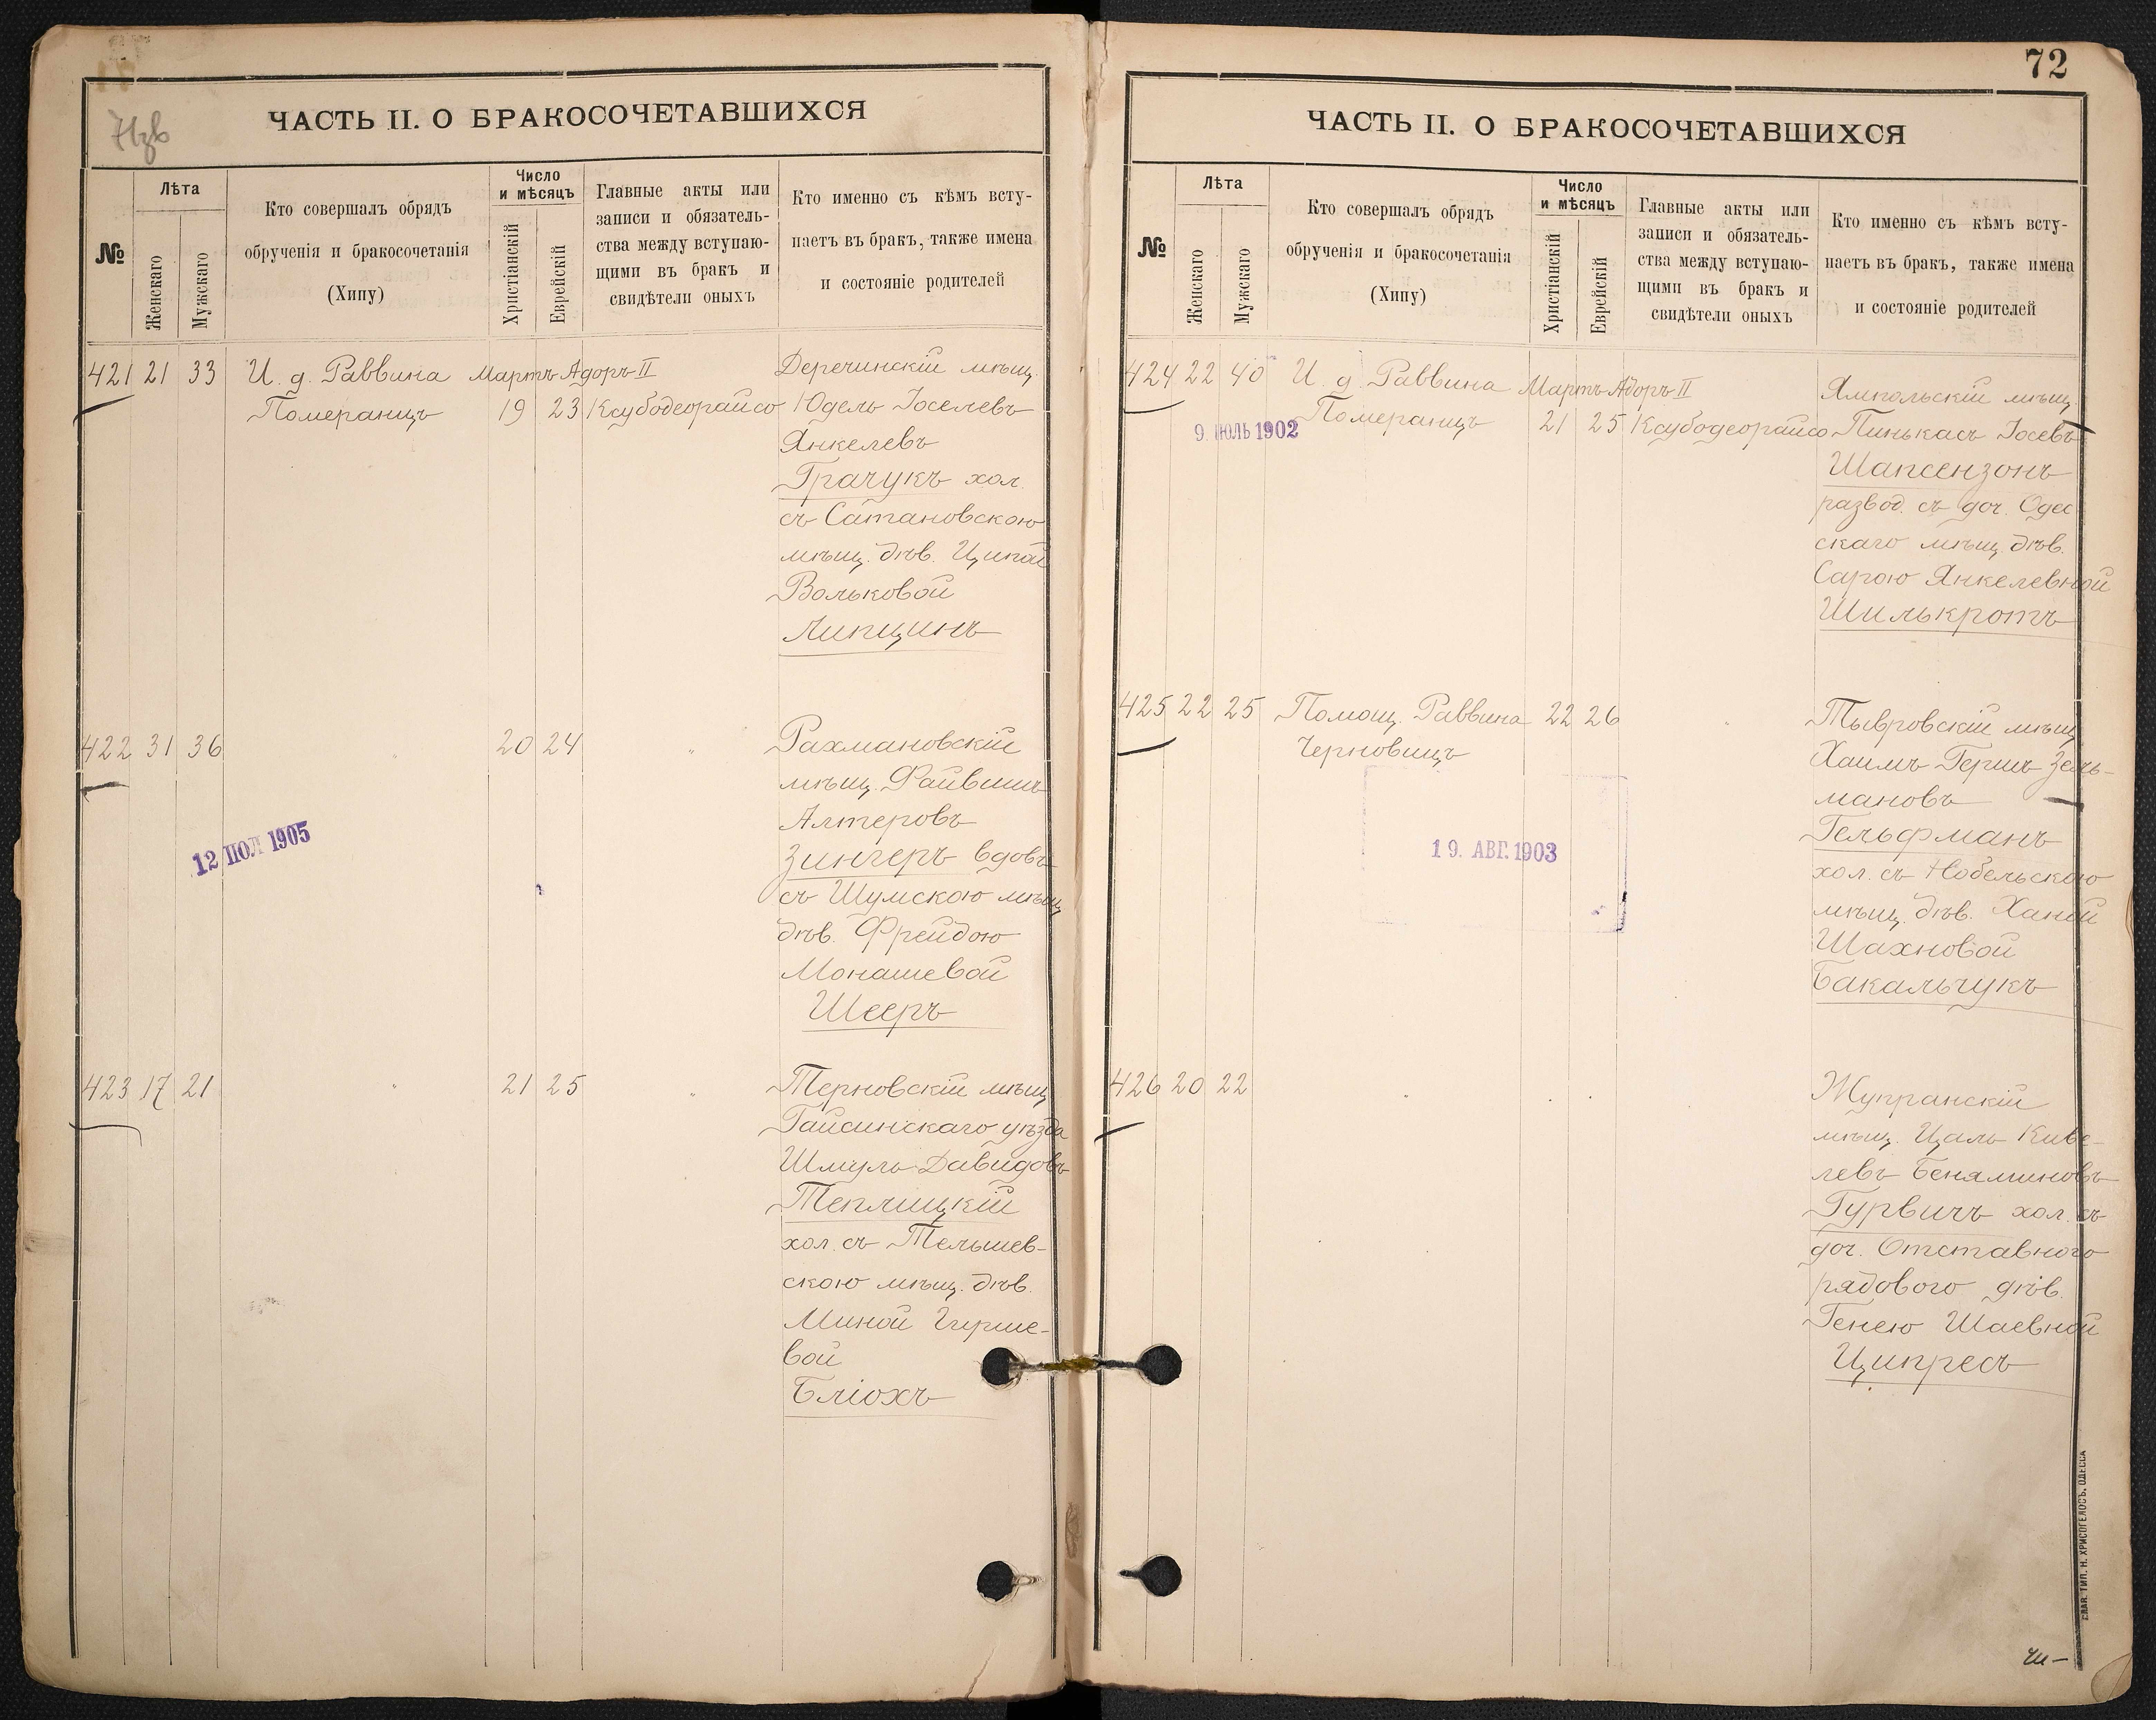 71зв
ЧАСТЬ II. О БРАКОСОЧЕТАВШИХСЯ
№
Лѣта
Женскаго
Мужскаго
Кто совершалъ обрядъ
обрученія и бракосочетанія
(Хипу)
Число
и мѣсяцъ
Христіанскій
Еврейскій
Главные акты или
записи и обязатель-
ства между вступаю-
щими въ бракъ и
свидѣтели оныхъ
Кто именно съ кѣмъ всту-
паетъ въ бракъ, также имена
и состояніе родителей
421 21 33 И. д. Раввина Мартъ Адоръ II Деречинскій мѣщ.
Померанцъ 19 23 Ксубодеорайсо Юдель Іоселевъ
Янкелевъ
Грачукъ хол.
съ Сатановскою
мѣщ. дѣв. Ципой
Вольковой
Липцинъ
422 31 36 " 20 24 " Рахмановскій
мѣщ. Файвишъ
Алтеровъ
Зингеръ вдовъ
съ Шумскою мѣщ
дѣв. Фрейдою
Монашевой
Шееръ
12 ІЮЛ 1905
423 17 21 " 21 25 " Терновскій мѣщ
Гайсинскаго уѣзда
Шмуль Давидовъ
Теплицкій
хол. съ Тельшев-
скою мѣщ. дѣв.
Миной Гирше-
вой
Бліохъ
72
ЧАСТЬ II. О БРАКОСОЧЕТАВШИХСЯ
№
Лѣта
Женскаго
Мужскаго
Кто совершалъ обрядъ
обрученія и бракосочетанія
(Хипу)
Число
и мѣсяцъ
Христіанскій
Еврейскій
Главные акты или
записи и обязатель-
ства между вступаю-
щими въ бракъ и
свидѣтели оныхъ
Кто именно съ кѣмъ всту-
паетъ въ бракъ, также имена
и состояніе родителей
424 22 40 И. д. Раввина Мартъ Адоръ II Ямпольскій мѣщ.
Померанцъ 21 25 Ксубодеорайсо Пинькасъ Іосевъ
9. ІЮЛЬ 1902
Шапсензонъ
развод. съ доч. Одес
скаго мѣщ. дѣв.
Сарою Янкелевной
Шилькротъ
425 22 25 Помощ. Раввина 22 26 " Тывровскій мѣщ
Черновицъ Хаимъ Гершъ Зель-
мановъ
Гельфманъ
хол. съ Нобельскою
мѣщ. дѣв. Ханой
Шахновой
Бакальчукъ
19. АВГ. 1903
426 20 22 " " " " Жупранскій
мѣщ. Цаль Киве-
левъ Беняминовъ
Гурвичъ хол. съ
доч. Отставного
рядового дѣв.
Генею Шаевной
Ципресъ
СЛАВ. ТИП. Н. ХРИСОГЕЛОСЪ, ОДЕССА